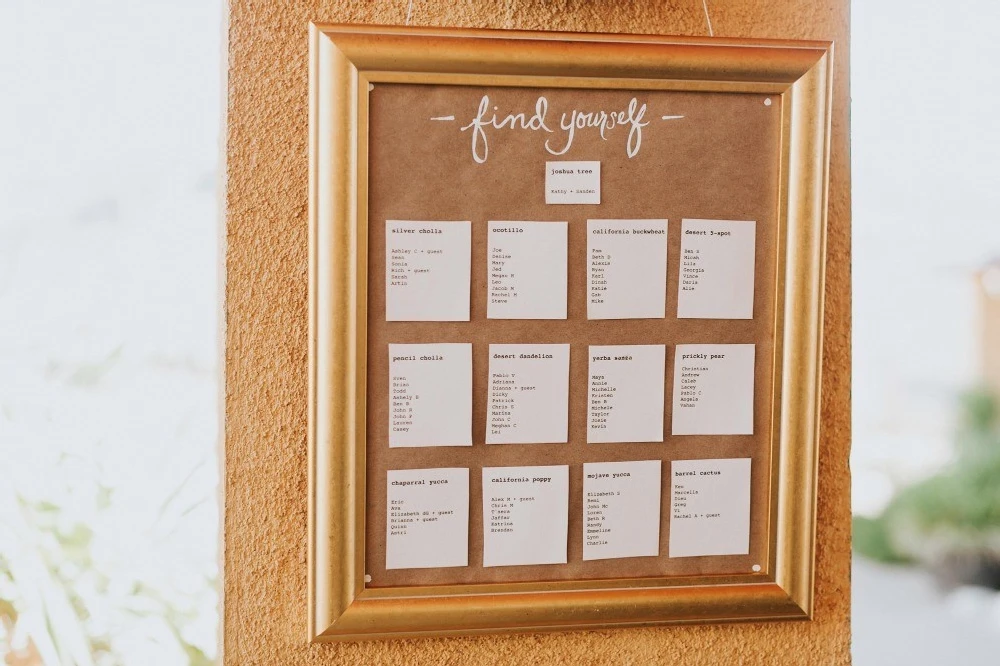 - find yourself -
joshua tree
Kathy + Landen
silver cholla
Ashley C + guest
Sean
Sonia
Rich + guest
Sarah
Artin
ocotillo
Joe
Denise
Mary
Jed
Megan H
Leo
Jacob M
Rachel M
Steve
california buckwheat
Pam
Beth D
Alexis
Ryan
Karl
Dinah
Katie
Gab
Mike
desert 5-spot
Ben S
Micah
Lila
Georgia
Vince
Daria
Alie
pencil cholla
Sven
Brian
Todd
Ashely B
Ben B
John R
John F
Lauren
Casey
desert dandelion
Pablo V
Adriana
Dianna + guest
Dicky
Patrick
Chris G
Marina
John C
Meghan C
Lei
yerba santa
Maya
Annie
Michelle
Kristen
Ben R
Michele
Taylor
Josie
Kevin
prickly pear
Christian
Andrew
Caleb
Lacey
Pablo C
Angela
Vahan
chaparral yucca
Eric
Ava
Elizabeth dS + guest
Brianna + guest
Quinn
Astri
california poppy
Alex M + guest
Chris M
Jaffav
Katrina
Brendan
mojave yucca
Elizabeth Z
Remi
John Mc
Loren
Beth R
Wendy
Emmeline
Lynn
Charlie
barrel cactus
Ken
Marcella
Dien
Greg
Vi
Rachel A + guest